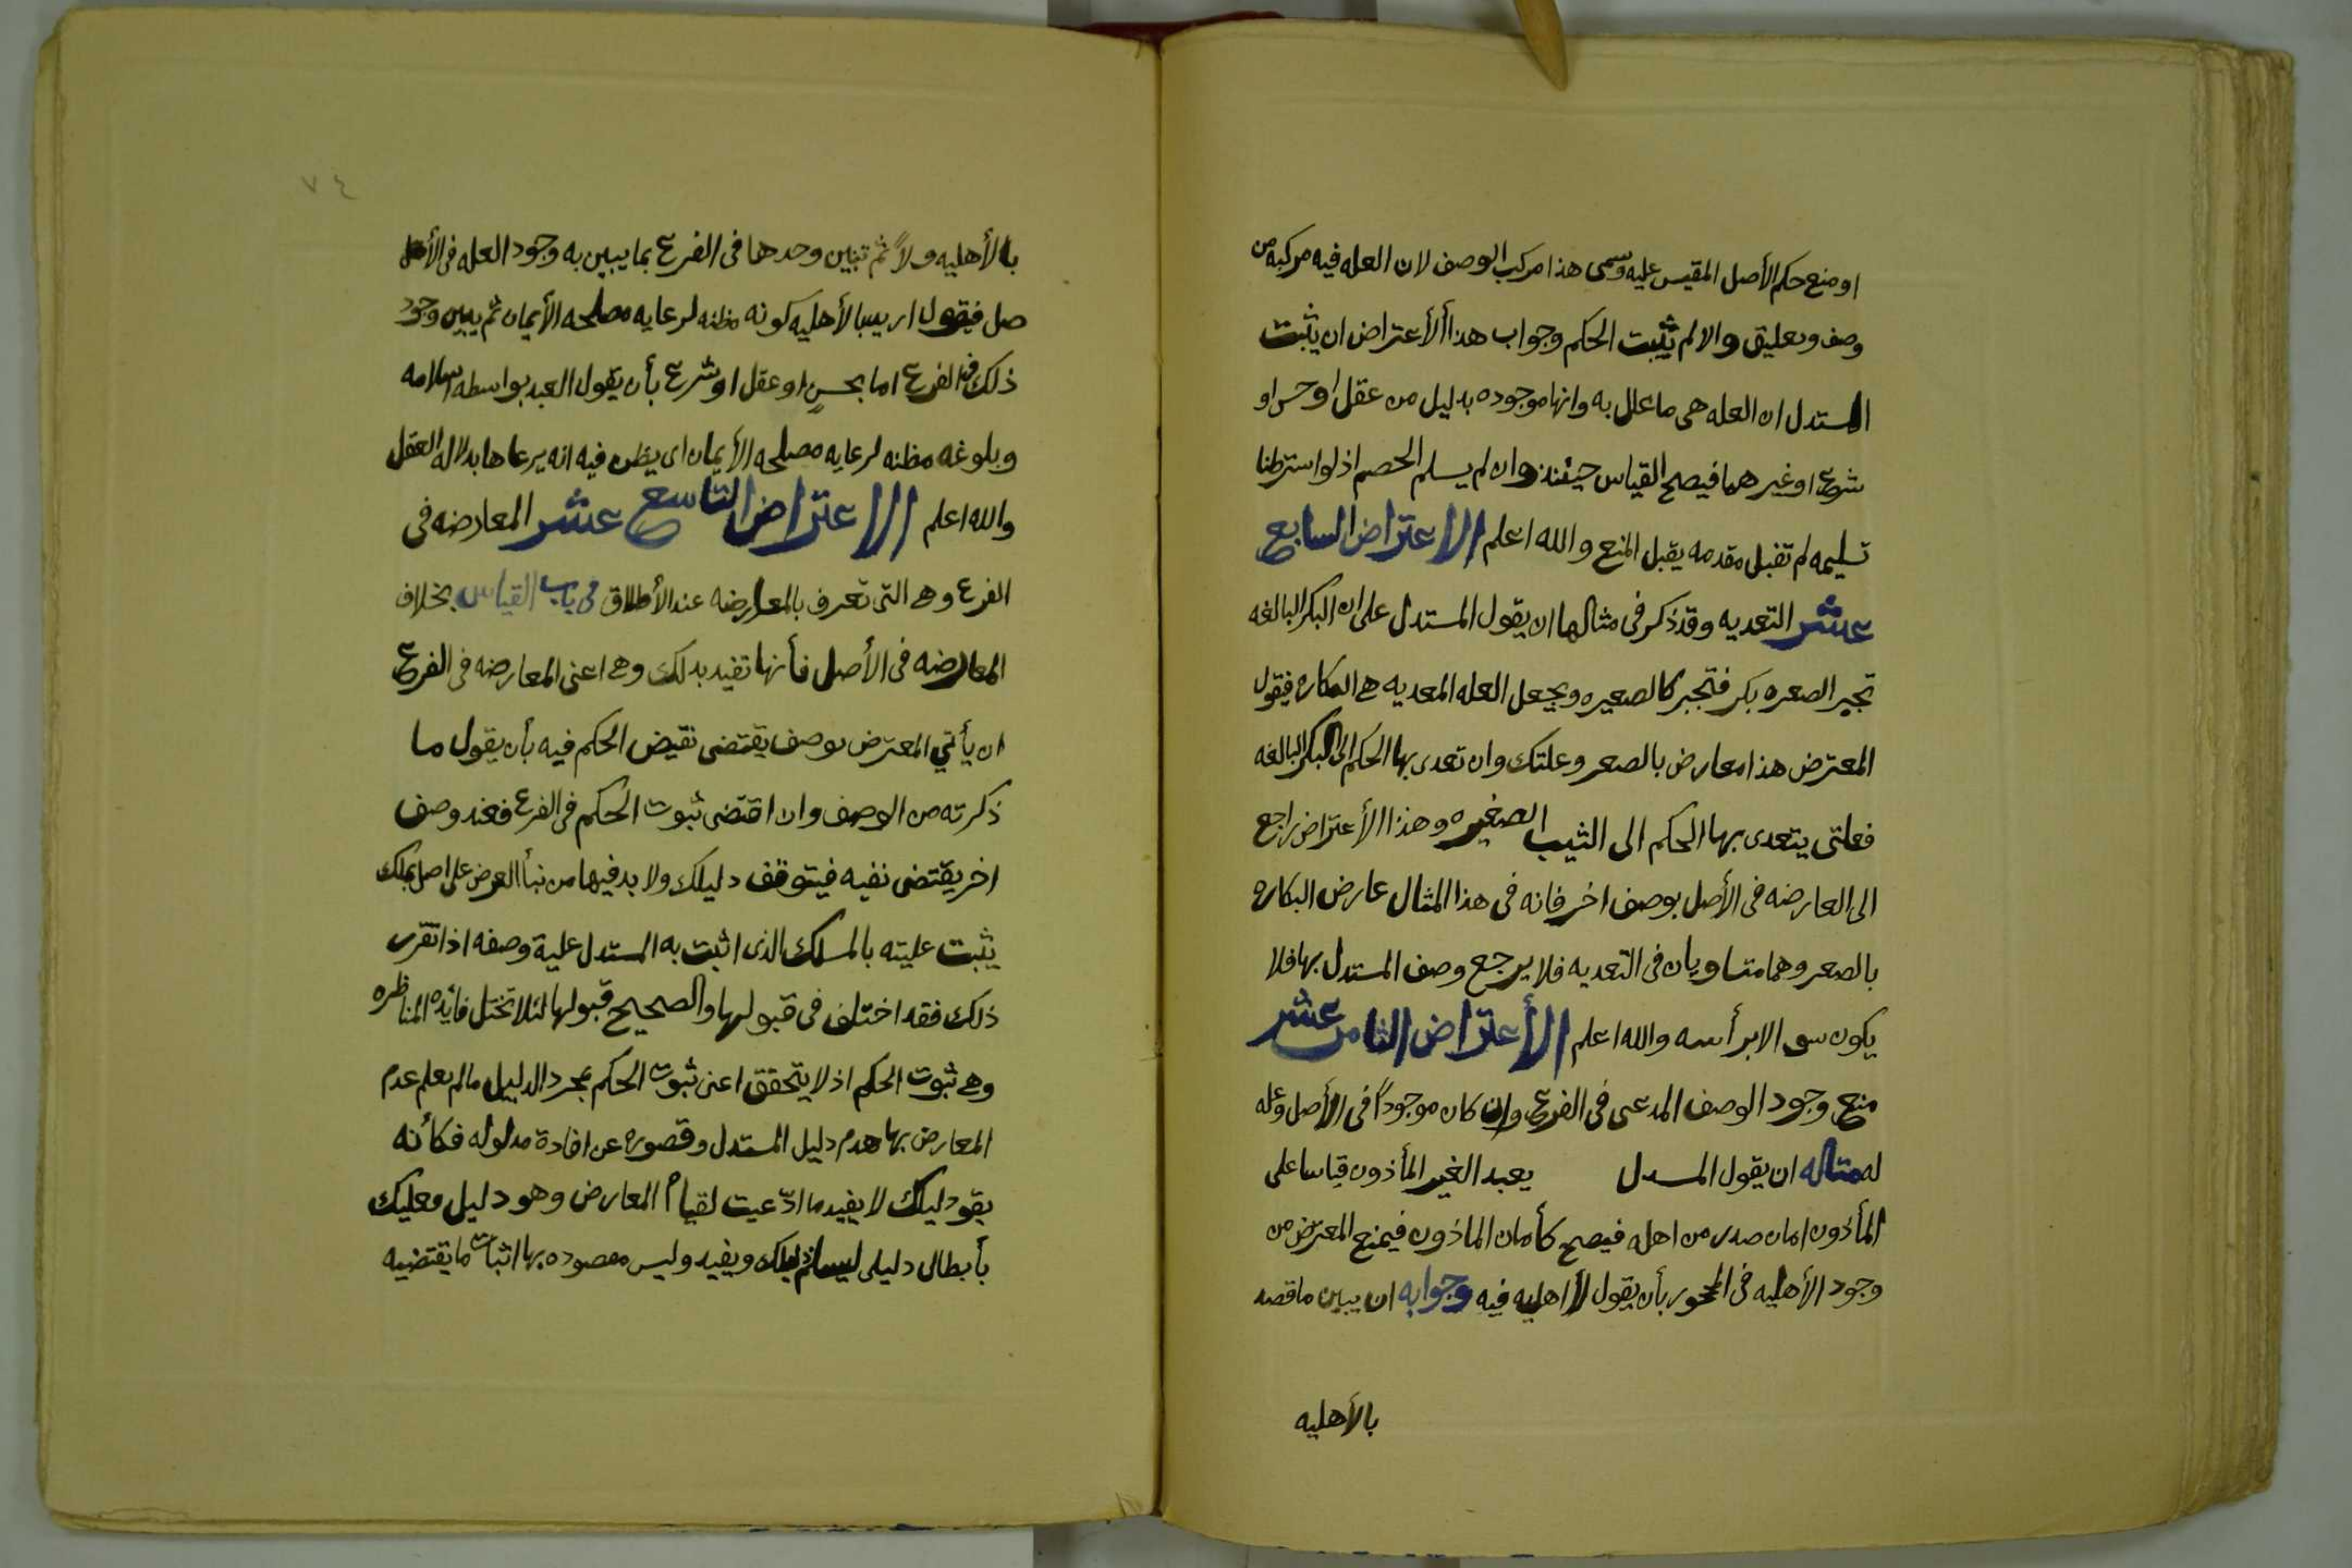 او منع حكم الأصل المقيس عليه وسمى هذا مركب الوصف لان العله فيه مركبه من
وصف وتعليق والا لم يثبت الحكم وجواب هذا الأعتراض ان يثبت
المستدل ان العله هى ما علل به وانها موجوده بدليل من عقل او حس او
شرع او غيرهما فيصح القياس حينئذ وان لم يسلم الخصم اذ لو اسثرطنا
تسليمه لم تقبل مقدمه يقبل المنع والله اعلم الاعتراض السابع
عشر التعديه وقد ذكر فى مثالها ان يقول المستدل على ان البكر البالغه
تجبر الصعره بكر فتجبر كالصعيره ويجعل العله المعديه هى البكاره فيقول
المعترض هذا معارض بالصعر وعلتك وان تعدى بها الحكم الى البكر البالغه
فعلتى يتعدى بها الحكم الى الثيب الصغيره وهذا الأعتراض راجع
الى العارضه فى الأصل بوصف اخر فانه فى هذا المثال عارض البكاره
بالصعر وهما متساويان فى التعديه فلا يرجع وصف المستدل بها فلا
يكون سوالا برأسه والله اعلم الأعتراض الثامن عشر
منع وجود الوصف المدعى فى الفرع وان كان موجوداً فى الأصل وعله
له مثاله ان يقول المسدل يعبد الغير المأذون قياسا على
المأذون امان صدر من اهله فيصح كأمان الماذون فيمنع المعترض من
وجود الأهليه فى المحجور بأن يقول لا اهليه فيه وجوابه ان يبين ما قصد
بالأهليه
٧٤
بالأهليه ولاً ثم تبين وحدها فى الفرع بما يبين به وجود العله فى الأ
صل فيقول اريد بالأهليه كونه مظنه لرعايه مصلحه الأيمان ثم يبين وجود
ذلك فى الفرع اما بحسٍ او عقل او شرع بأن يقول العبد بواسطه اسلامه
وبلوغه مظنه لرعايه مصلحه الأيمان اى يظن فيه انه يرعاها بدلاله العقل
والله اعلم الاعتراض التاسع عشر المعارضه فى
الفرع وهى التى تعرف بالمعارضه عند الأطلاق فى باب القياس بخلاف
المعارضه فى الأصل فأنها تفيد بدلك وهى اعنى المعارضه فى الفرع
ان يأتي المعترض بوصف يقتضى نقيض الحكم فيه بأن يقول ما
ذكرته من الوصف وان اقتضى ثبوت الحكم فى الفرع فعند وصف
اخر يقتضى نفيه فيتوقف دليلك ولا بد فيها من نبأ العرض على اصل
يثبت عليته بالمسلك الذى اثبت به المستدل علية وصفه اذا تقرر
ذلك فقد اختلف فى قبولها والصحيح قبولها لئلا تختل فائده المناظره
وهى ثبوت الحكم اذ لا يتحقق اعنى ثبوت الحكم بمجرد الدليل مالم يعلم عدم
المعارض بها هدم دليل المستدل وقصوره عن افادة مدلوله فكأنه
يقو دليلك لا يفيد ما ادّعيت لقيام المعارض وهو دليل فعليك
بأبطال دليلى ليسلم دليلك ويفيد وليس معصوده بها اثبات ما يقتضيه